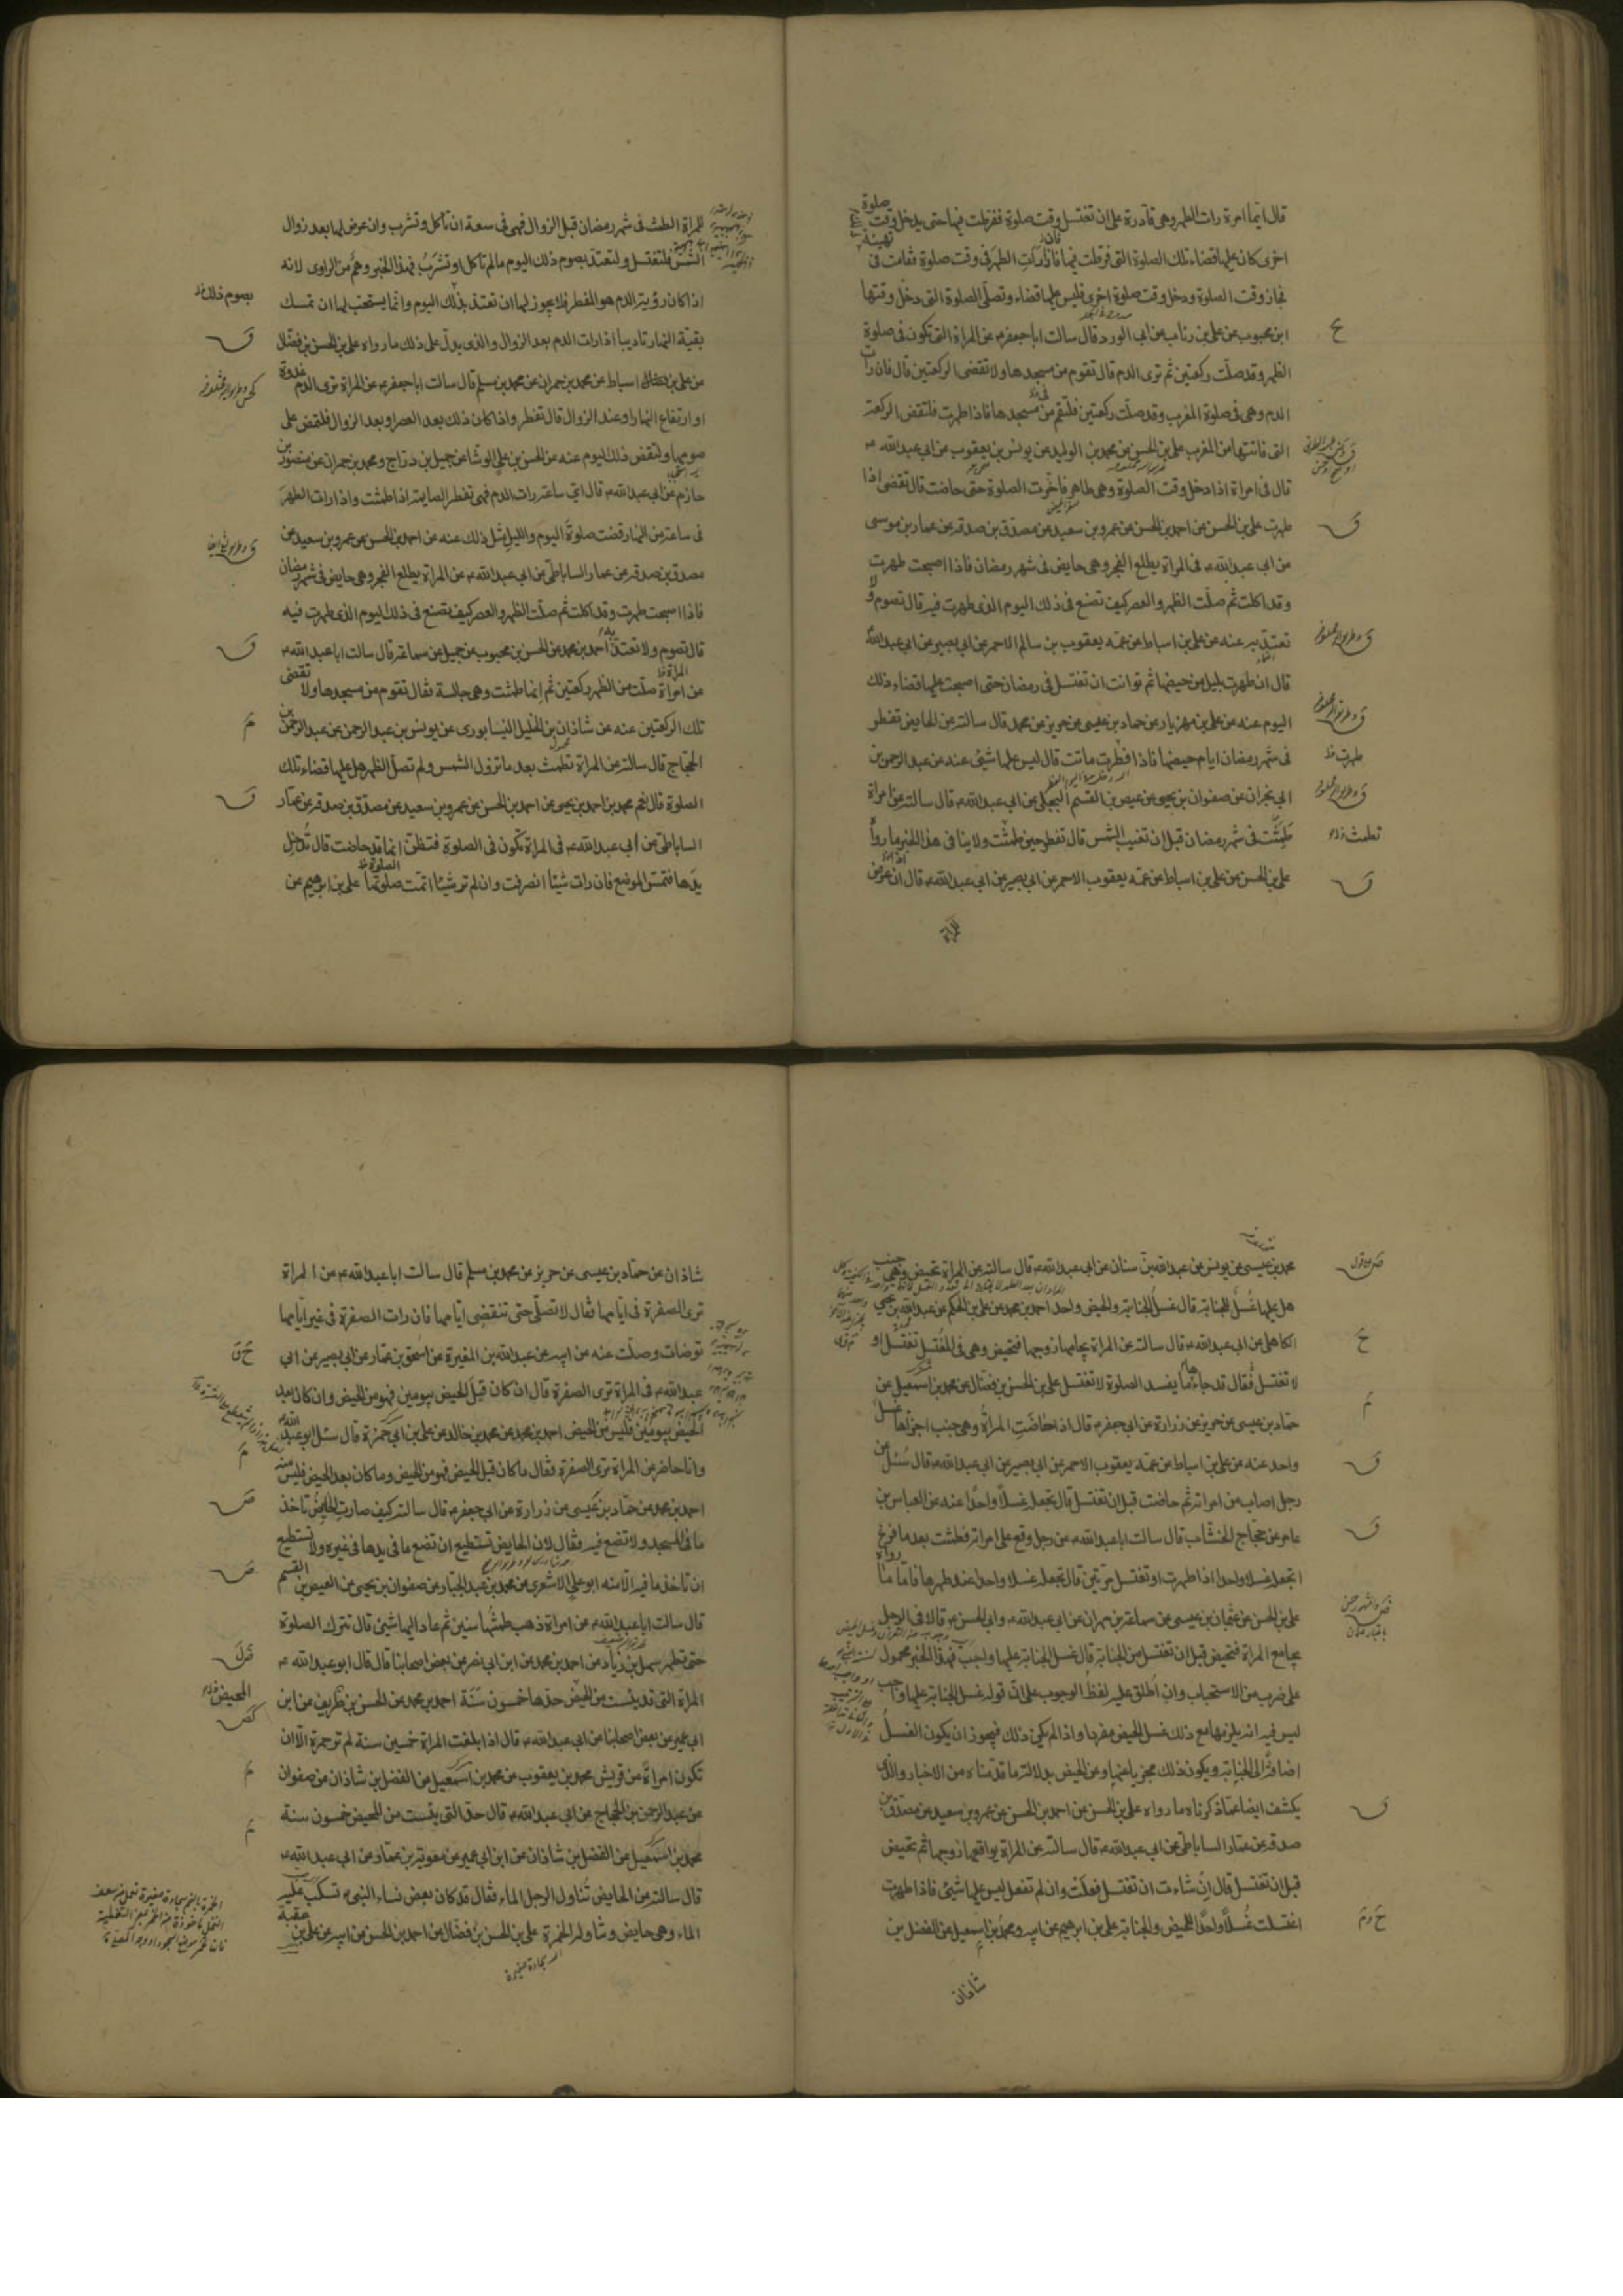 قال ايما امرة رات الطهر وهى قادرة على ان تغتسل وقت صلوة ففرطت فيها حتى يدخل وقت صلوة
اخرى كان عليها قضاء تلك الصلوة التى فرطت فيها فاذا رات الطهر فى وقت صلوة فقامت فى تهيئة
فجاز وقت الصلوة ودخل وقت صلوة اخرى فليس عليها قضاء وتصلى الصلوة التى دخل وقتها
ابن محبوب عن على بن رئاب عن ابى الورد قال سالت ابا جعفر ع عن المراة التى تكون فى صلوة
الظهر وقد صلت ركعتين ثم ترى الدم قال تقوم من مسجدها ولا تقضى الركعتين قال فان رات
الدم وهى فى صلوة المغرب وقد صلت ركعتين فلتقم من مسجدها فاذا طهرت فلتقض الركعة
التى فاتتها من المغرب على بن الحسن عن محمد بن الوليد عن يونس بن يعقوب عن ابى عبدالله ع
قال فى امراة اذا دخل وقت الصلوة وهى طاهر فاخرت الصلوة حتى حاضت قال تقضى اذا
طهرت على بن الحسن عن احمد بن الحسن عن عمرو بن سعيد عن مصدق بن صدقة عن عمار بن موسى
عن ابى عبدالله ع فى المراة يطلع الفجر وهى حايض فى شهر رمضان فاذا اصبحت طهرت
وقد اكلت ثم صلت الظهر والعصر كيف تصنع فى ذلك اليوم الذى طهرت فيه قال تصوم ولا
تعتد به عنه عن على بن اسباط عن عمه يعقوب بن سالم الاحمر عن ابى بصير عن ابى عبدالله ع
قال ان طهرت بليل من حيضها ثم توانت ان تغتسل فى رمضان حتى اصبحت عليها قضاء ذلك
اليوم عنه عن على بن مهزيار عن حماد بن عيسى عن حريز عن محمد قال سالته عن الحايض تفطر
فى شهر رمضان ايام حيضها فاذا افطرت ماتت قال ليس عليها شيئ عنه عن عبد الرحمن بن
ابى نجران عن صفوان بن يحيى عن عيص بن القسم البجلى عن ابى عبدالله ع قال سالته عن امراة
طمثت فى شهر رمضان قبل ان تغيب الشمس قال تفطر حين طمثت ولا ينافى هذا الخبر ما رواه
على بن الحسن عن على بن اسباط عن عمه يعقوب الاحمر عن ابى بصير عن ابى عبدالله ع قال ان عرض
للمراة
للمراة الطمث فى شهر رمضان قبل الزوال فهى فى سعة ان تاكل وتشرب وان عرض لها بعد زوال
الشمس فلتغتسل ولتعتد بصوم ذلك اليوم ما لم تاكل او تشرب فهذا الخبر وهم من الراوى لانه
اذا كان رؤية الدم هو المفطر فلا يجوز لها ان تعتد بذلك اليوم وانما يستحب لها ان تمسك
بصوم ذلك خ
بقية النهار تاديبا اذا رات الدم بعد الزوال والذى يدل على ذلك ما رواه على بن الحسن بن فضال
عن على بن اسباط عن محمد بن حمران عن محمد بن مسلم قال سالت ابا جعفر ع عن المراة ترى الدم غدوة
او ارتفاع النهار او عند الزوال قال تفطر واذا كان ذلك بعد العصر او بعد الزوال فلتمض على
صومها ولتقض ذلك اليوم عنه عن الحسن بن على الوشا عن جميل بن دراج ومحمد بن حمران عن منصور بن
حازم عن ابى عبدالله ع قال اى ساعة رات الدم فهى تفطر الصايمة اذا طمثت واذا رات الطهر
فى ساعة من النهار قضت صلوة اليوم والليل مثل ذلك عنه عن احمد بن الحسن عن عمرو بن سعيد عن
مصدق بن صدقة عن عمار الساباطى عن ابى عبدالله ع عن المراة يطلع الفجر وهى حايض فى شهر رمضان
فاذا اصبحت طهرت وقد اكلت ثم صلت الظهر والعصر كيف تصنع فى ذلك اليوم الذى طهرت فيه
قال تصوم ولا تعتد به احمد بن محمد عن الحسن بن محبوب عن جميل عن سماعة قال سالت ابا عبدالله ع
عن امراة صلت من الظهر ركعتين ثم انها طمثت وهى جالسة فقال تقوم من مسجدها ولا تقضى
تلك الركعتين عنه عن شاذان بن الخليل النيسابورى عن يونس بن عبد الرحمن عن عبد الرحمن بن
الحجاج قال سالته عن المراة تطمث بعد ما تزول الشمس ولم تصل الظهر هل عليها قضاء تلك
الصلوة قال نعم محمد بن احمد بن يحيى عن احمد بن الحسن عن عمرو بن سعيد عن مصدق بن صدقة عن عمار
الساباطى عن ابى عبدالله ع فى المراة تكون فى الصلوة فتظن انها قد حاضت قال تدخل
يدها فتمس الموضع فان رات شيئا انصرفت وان لم تر شيئا اتمت صلوتها على بن ابرهيم عن
محمد بن عيسى عن يونس عن عبدالله بن سنان عن ابى عبدالله ع قال سالته عن المراة تحيض وهى جنب
هل عليها غسل الجنابة قال غسل الجنابة والحيض واحد احمد بن محمد عن على بن الحكم عن عبدالله بن يحيى
الكاهلى عن ابى عبدالله ع قال سالته عن المراة يجامعها زوجها فتحيض وهى فى المغتسل تغتسل او
لا تغتسل فقال قد جاءها ما يفسد الصلوة لا تغتسل على بن الحسن بن فضال عن محمد بن اسمعيل عن
حماد بن عيسى عن حريز عن زرارة عن ابى جعفر ع قال اذا حاضت المراة وهى جنب اجزاها غسل
واحد عنه عن على بن اسباط عن عمه يعقوب الاحمر عن ابى بصير عن ابى عبدالله ع قال سئل عن
رجل اصاب من امراته ثم حاضت قبل ان تغتسل قال تجعله غسلا واحدا عنه عن العباس بن
عامر عن حجاج الخشاب قال سالت ابا عبدالله ع عن رجل وقع على امراته فطمثت بعد ما فرغ
اتجعله غسلا واحدا اذا طهرت او تغتسل مرتين قال تجعله غسلا واحدا عند طهرها فاما ما رواه
على بن الحسن عن عثمان بن عيسى عن سماعة بن مهران عن ابى عبدالله ع وابى الحسن ع قالا فى الرجل
يجامع المراة فتحيض قبل ان تغتسل من الجنابة قال غسل الجنابة عليها واجب فهذا الخبر محمول
على ضرب من الاستحباب وان اطلق عليه لفظ الوجوب على ان قوله غسل الجنابة عليها واجب
ليس فيه انه يلزمها مع ذلك غسل الحيض مفردا واذا لم يكن ذلك فيجوز ان يكون الغسل
اضافة الى الجنابة ويكون ذلك مجزيا عنها وعن الحيض بدلالة ما قدمناه من الاخبار والذى
يكشف ايضا عما ذكرناه ما رواه على بن الحسن عن احمد بن الحسن عن عمرو بن سعيد عن مصدق بن
صدقة عن عمار الساباطى عن ابى عبدالله ع قال سالته عن المراة يواقعها زوجها ثم تحيض
قبل ان تغتسل قال ان شاءت ان تغتسل فعلت وان لم تفعل ليس عليها شيئ فاذا طهرت
اغتسلت غسلا واحدا للحيض والجنابة على بن ابرهيم عن ابيه ومحمد بن اسمعيل عن الفضل بن
شاذان
شاذان عن حماد بن عيسى عن حريز عن محمد بن مسلم قال سالت ابا عبدالله ع عن المراة
ترى الصفرة فى ايامها فقال لا تصلى حتى تنقضى ايامها فان رات الصفرة فى غير ايامها
توضات وصلت عنه عن ابيه عن عبدالله بن المغيرة عن اسحق بن عمار عن ابى بصير عن ابى
عبدالله ع فى المراة ترى الصفرة قال ان كان قبل الحيض بيومين فهو من الحيض وان كان بعد
الحيض بيومين فليس من الحيض احمد بن محمد عن محمد بن خالد عن على بن ابى حمزة قال سئل ابو عبدالله ع
وانا حاضر عن المراة ترى الصفرة فقال ما كان قبل الحيض فهو من الحيض وما كان بعد الحيض فليس منه
احمد بن محمد عن حماد بن عيسى عن زرارة عن ابى جعفر ع قال سالته كيف صارت الحايض تاخذ
ما فى المسجد ولا تضع فيه فقال لان الحايض تستطيع ان تضع ما فى يدها فى غيره ولا تستطيع
ان تاخذ ما فيه الا منه ابو على الاشعرى عن محمد بن عبد الجبار عن صفوان بن يحيى عن العيص بن القسم
قال سالت ابا عبدالله ع عن امراة ذهب طمثها سنين ثم عاد اليها شيئ قال تترك الصلوة
حتى تطهر سهل بن زياد عن احمد بن محمد عن ابن ابى نصر عن بعض اصحابنا قال قال ابو عبدالله ع
المراة التى قد يئست من الحيض حدها خمسون سنة احمد بن محمد عن الحسن بن ظريف عن ابن
ابى عمير عن بعض اصحابنا عن ابى عبدالله ع قال اذا بلغت المراة خمسين سنة لم تر حمرة الا ان
تكون امراة من قريش محمد بن يعقوب عن محمد بن اسمعيل عن الفضل بن شاذان عن صفوان
عن عبد الرحمن بن الحجاج عن ابى عبدالله ع قال حد التى يئست من المحيض خمسون سنة
محمد بن اسمعيل عن الفضل بن شاذان عن ابن ابى عمير عن معوية بن عمار عن ابى عبدالله ع
قال سالته عن الحايض تناول الرجل الماء فقال قد كان بعض نساء النبى ص تسكب عليه
الماء وهى حايض وتناوله الخمرة على بن الحسن بن فضال عن احمد بن الحسن عن ابيه عن على بن عقبة